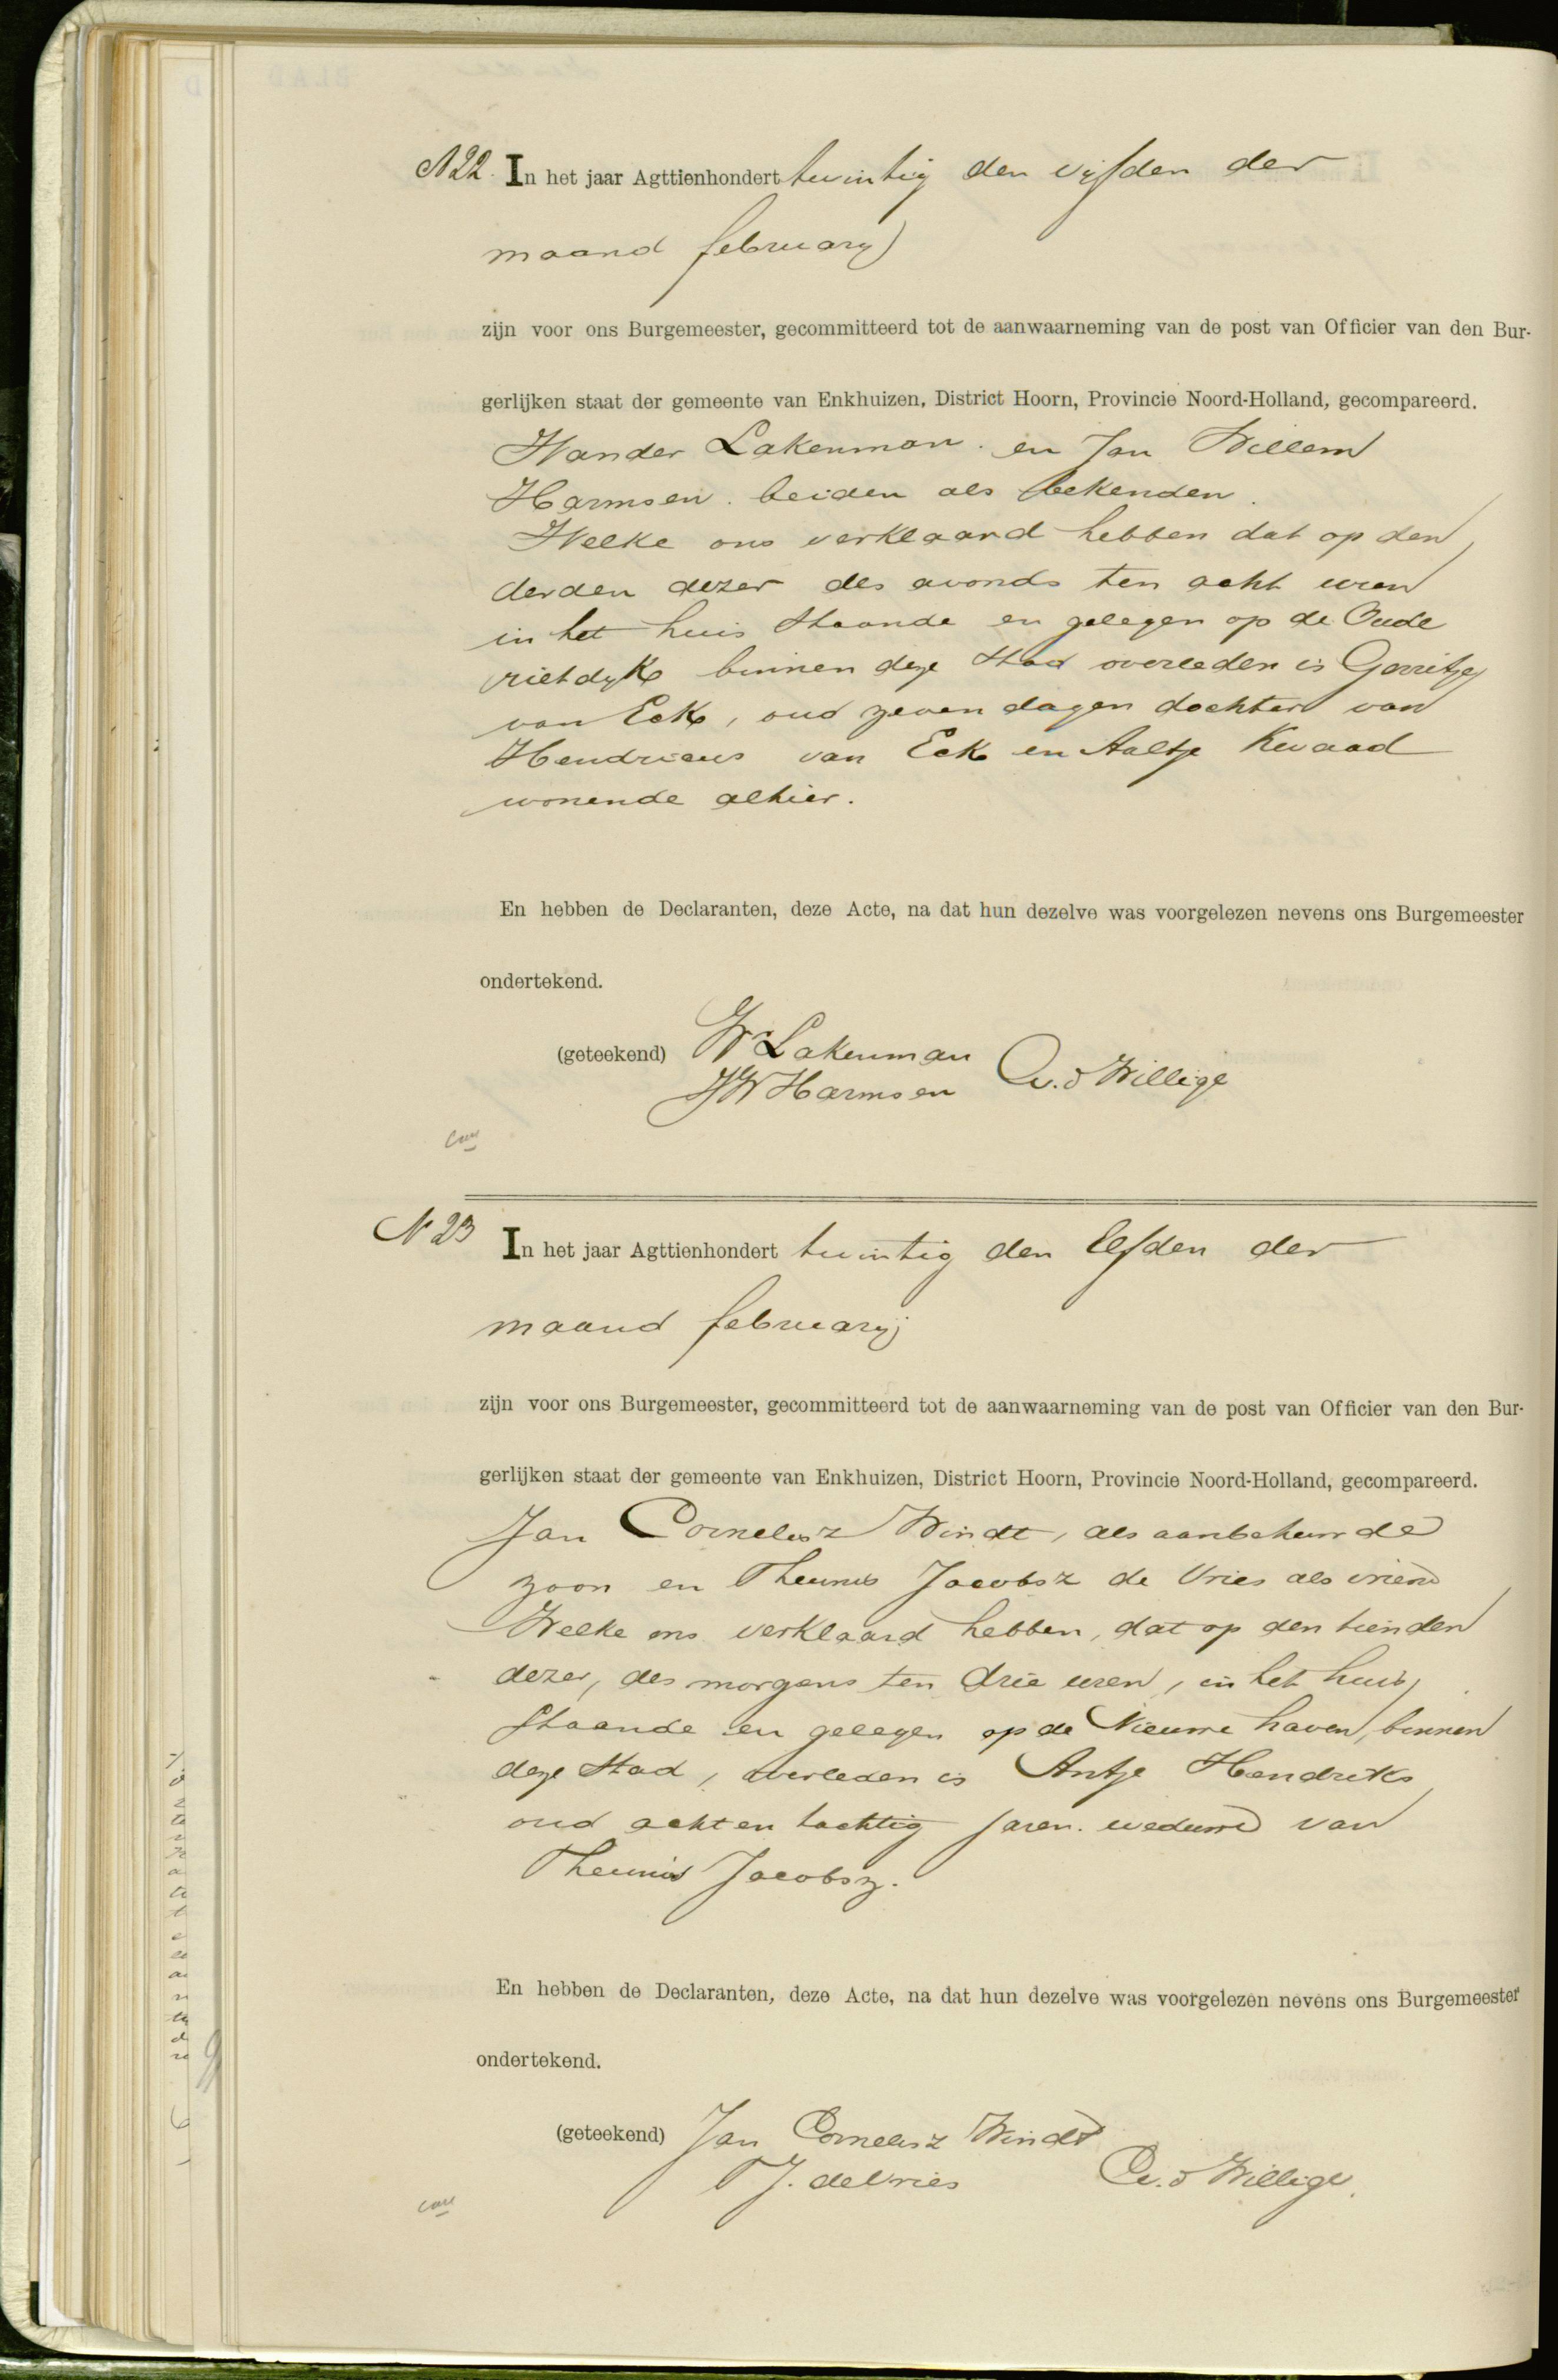 N 22. In het jaar Agttienhondert twintig den vijfden der
maand february
zijn voor ons Burgemeester, gecommitteerd tot de aanwaarneming van de post van Officier van den Bur-
gerlijken staat der gemeente van Enkhuizen, District Hoorn, Provincie Noord-Holland, gecompareerd.
Wander Lakenman. en Jan Willem
Harmsen. beiden als bekenden.
Welke ons verklaard hebben dat op den
derden dezer des avonds ten acht uren
in het huis staande en gelegen op de Oude
rietdyk binnen deze stad overleden is Gerritje
van Eck, oud zeven dagen dochter van
Hendricus van Eck en Aaltje Kwaad
wonende alhier.
En hebben de Declaranten, deze Acte, na dat hun dezelve was voorgelezen nevens ons Burgemeester
ondertekend.
(geteekend) W Lakenman
JW Harmsen C v. d Willige
N 23 In het jaar Agttienhondert twintig den elfden der
maand februarij
zijn voor ons Burgemeester, gecommitteerd tot de aanwaarneming van de post van Officier van den Bur-
gerlijken staat der gemeente van Enkhuizen, District Hoorn, Provincie Noord-Holland, gecompareerd.
Jan Cornelisz Windt, als aanbehuwde
zoon en Theunis Jacobsz de Vries als vriend
Welke ons verklaard hebben, dat op den tienden
dezer, des morgens ten drie uren, in het huis,
staande en gelegen op de Nieuwe haven, binnen
deze stad, overleden is Antje Hendriks
oud acht en tachtig jaren. weduwe van
Theunis Jacobsz.
En hebben de Declaranten, deze Acte, na dat hun dezelve was voorgelezen nevens ons Burgemeester
ondertekend.
(geteekend) Jan Cornelisz Windt
TJ. de Vries C v. d Willige.